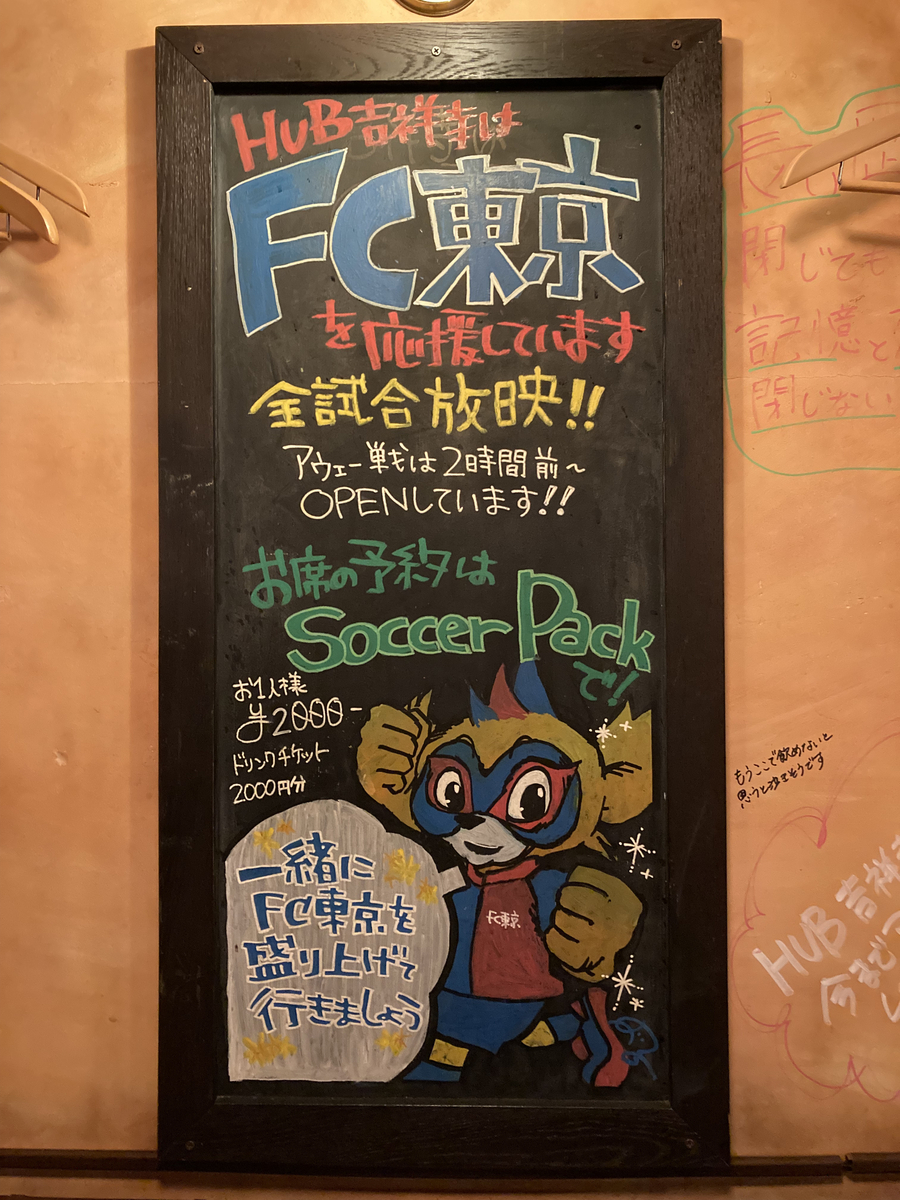 HUB吉祥寺は
FC東京
を応援しています
全試合放映!!
アウェー戦は2時間前~
OPENしています!!
お席の予約は
Soccer Pack
で!
お1人様
¥2000-
ドリンクチケット
2000円分
一緒に
FC東京を
盛り上げて
行きましょう
FC東京
閉じても
記憶と
閉じない
もうここで飲めないと
思うと
そうです
HUB吉祥
今まで